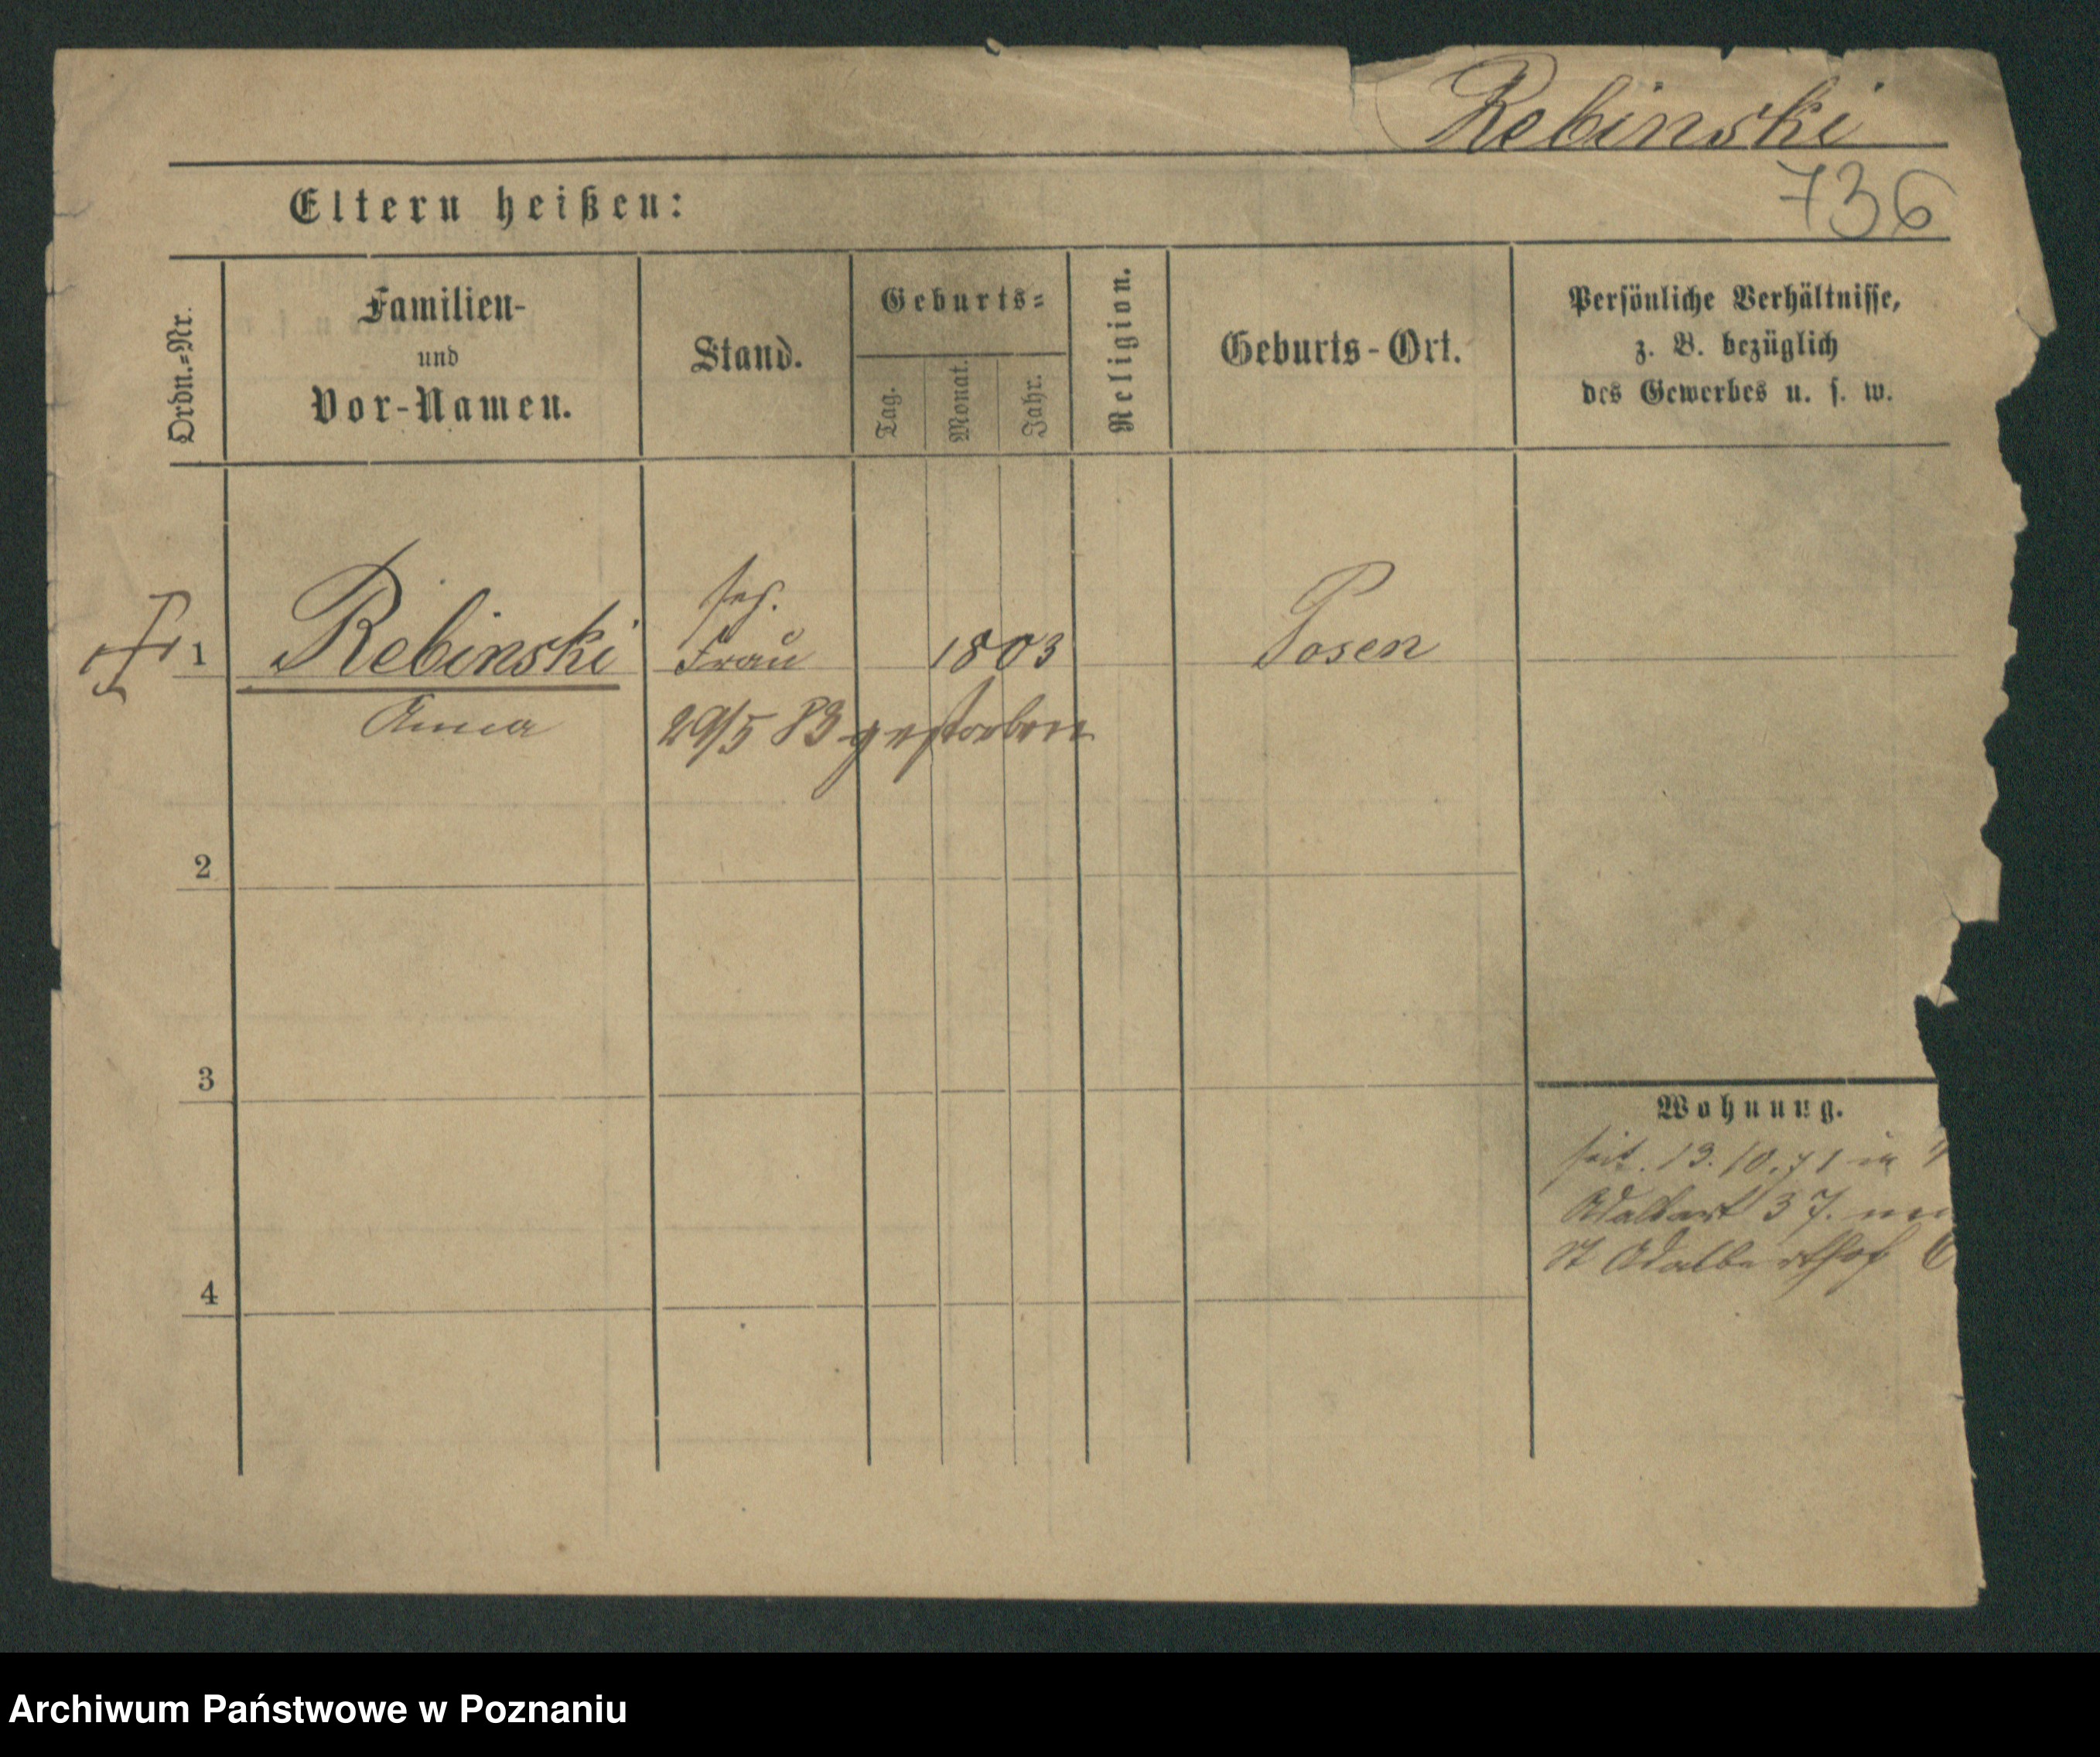 Rebinski
736
Eltern heißen:
Ordn.-Nr.
Familien-
und
Vor-Namen.
Stand.
Geburts-
Tag.
Monat.
Jahr.
Religion.
Geburts-Ort.
Persönliche Verhältnisse,
z. B. bezüglich
des Gewerbes u. s. w.
1
Rebinski
Anna
Frau
1803
Posen
29/5 83 gestorben
2
3
4
Wohnung.
seit. 13.10.71 in
Adalbert 37.
St Adalberthof
Archiwum Państwowe w Poznaniu